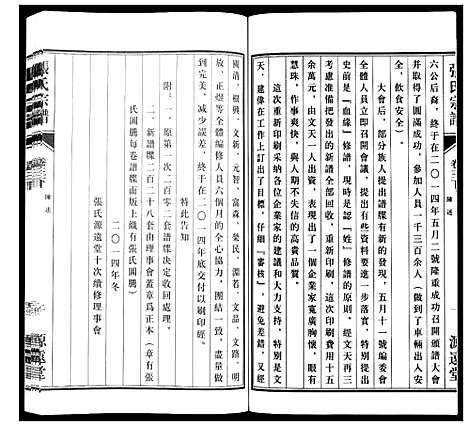 張氏宗譜
卷三下
陳述
源遠堂
六公后裔，終于在二〇一四年五月二號隆重成功召開頒譜大會
并取得了圓滿成功，參加人員一千三百余人（做到了車輛出入安
全，飲食安全）
大會后，部分族人提出譜牒有新的說明，五月十一號編委會
全體人員立即召開會議，提出有些資料要進一步落實，特別是
史前是「血緣」修譜，現時是認「姓」修譜的原則，經文天再三
考慮准備把發出的新譜全部回收，重新印刷，這次印刷費用十五
余萬元，由文天一人出資，表現出了一個企業家寬廣胸懷，眼有
慧珠，作事爽快，與人期不失信的高貴品質。
這次重新印刷采納各位企業家的建議和大力支持，特別是文
天、建偉在工作上訂出了目標，仔細「審核」，避免差錯，又經
國清、根興、文新、元智、富森、榮民、淵若、文品、文路、明
放、正煜等全體編修人員六個月的全心協力，團結一致，盡量做
到完美，減少誤差，終于在二〇一四年底交付以刷印經。
特此告知
附：一、原第一次二百零二套譜牒決定收回處理。
二、新譜牒二百二十八套由理事會蓋章爲正本（章有張
氏圖騰每卷譜牒面版上織有張氏圖騰）
二〇一四年冬
張氏源遠堂十次續修理事會
張氏宗譜
卷三下
陳述
源遠堂